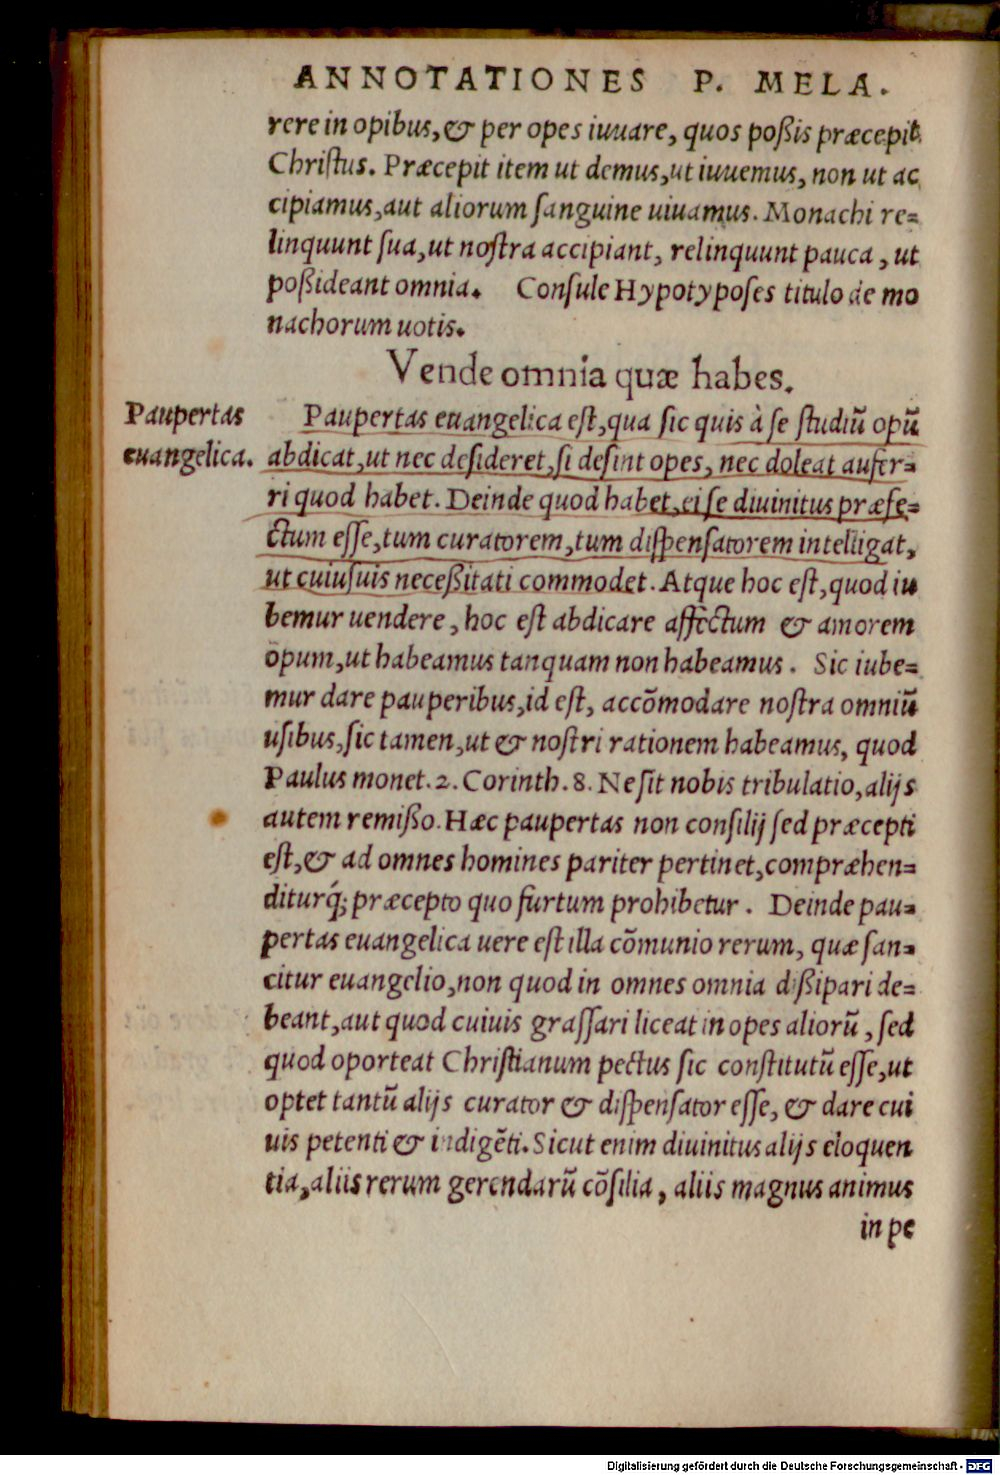 ANNOTATIONES P. MELA.
rere in opibus, & per opes iuuare, quos poßis præcepit
Chriſtus. Præcepit item ut demus, ut iuuemus, non ut ac
cipiamus, aut aliorum ſanguine uiuamus. Monachi re=
linquunt ſua, ut noſtra accipiant, relinquunt pauca, ut
poßideant omnia. Conſule Hypotypoſes titulo de mo
nachorum uotis.
Vende omnia quæ habes.
Paupertas
euangelica.
Paupertas euangelica eſt, qua ſic quis à ſe ſtudiũ opũ
abdicat, ut nec deſideret, ſi deſint opes, nec doleat aufer=
ri quod habet. Deinde quod habet, ei ſe diuinitus præfe=
ctum eſſe, tum curatorem, tum diſpenſatorem intelligat,
ut cuiuſuis neceßitati commodet. Atque hoc eſt, quod iu
bemur uendere, hoc eſt abdicare affectum & amorem
opum, ut habeamus tanquam non habeamus. Sic iube=
mur dare pauperibus, id eſt, accõmodare noſtra omniũ
uſibus, ſic tamen, ut & noſtri rationem habeamus, quod
Paulus monet. 2. Corinth. 8. Ne ſit nobis tribulatio, alijs
autem remißo. Hæc paupertas non conſilij ſed præcepti
eſt, & ad omnes homines pariter pertinet, compræhen=
diturq́; præcepto quo furtum prohibetur. Deinde pau=
pertas euangelica uere eſt illa cõmunio rerum, quæ ſan=
citur euangelio, non quod in omnes omnia dißipari de=
beant, aut quod cuiuis graſſari liceat in opes aliorũ, ſed
quod oporteat Chriſtianum pectus ſic conſtitutũ eſſe, ut
optet tantũ alijs curator & diſpenſator eſſe, & dare cui
uis petenti & indigẽti. Sicut enim diuinitus alijs eloquen
tia, aliis rerum gerendarũ cõſilia, aliis magnus animus
in pe
Digitalisierung gefördert durch die Deutsche Forschungsgemeinschaft - DFG